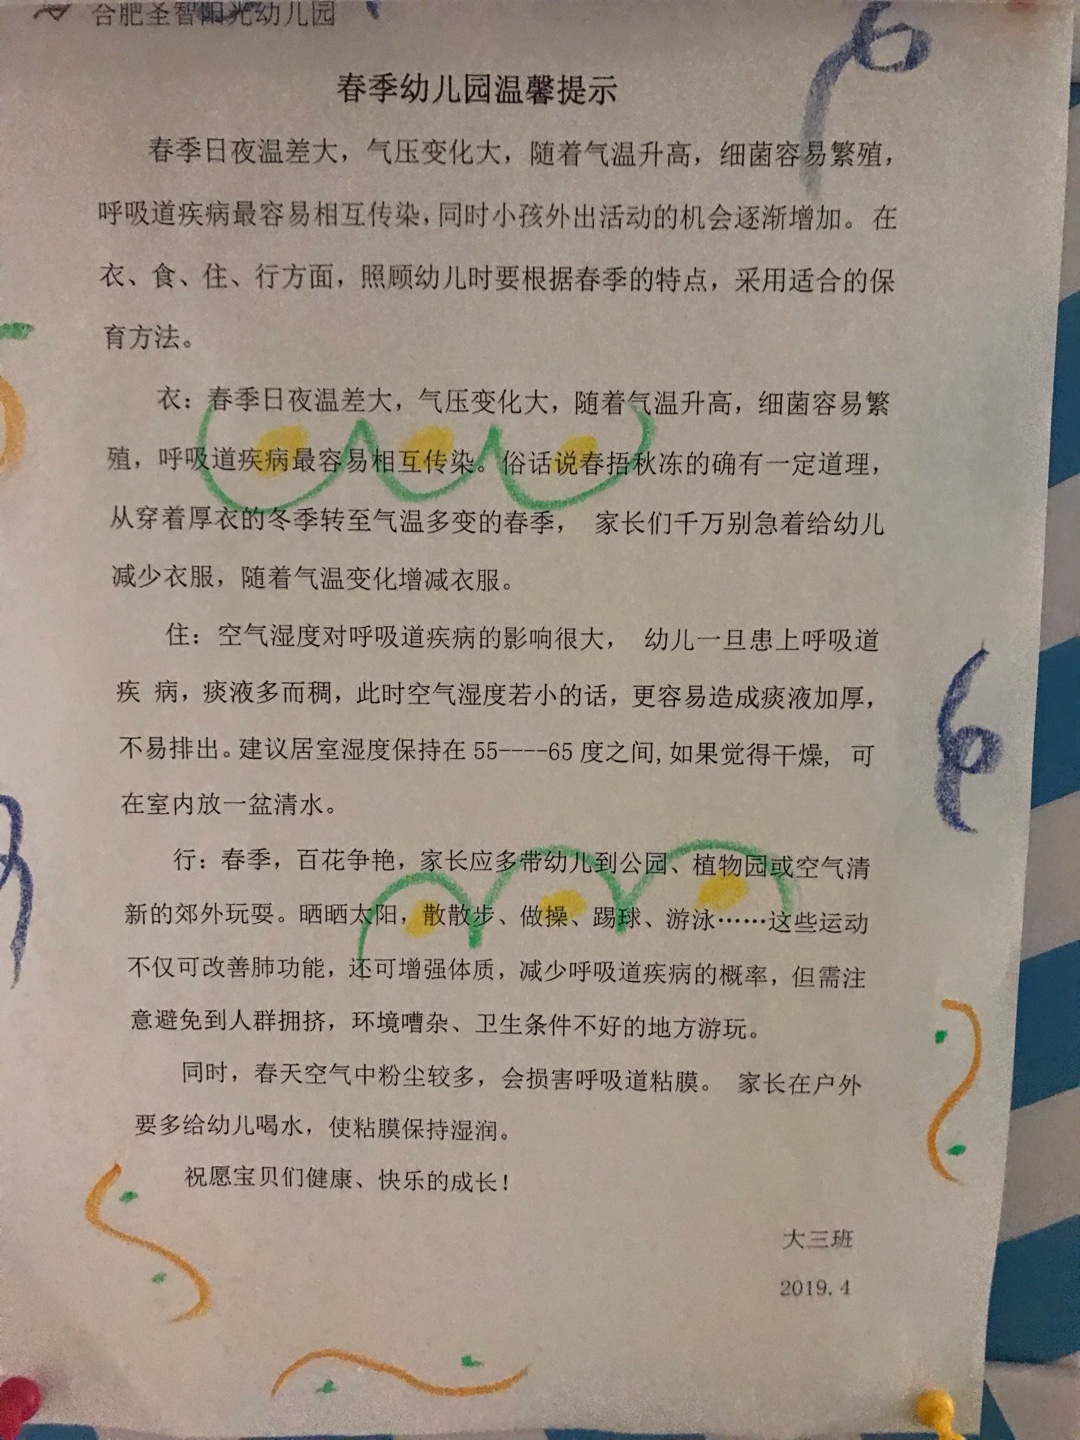 合肥圣智阳光幼儿园
春季幼儿园温馨提示
春季日夜温差大，气压变化大，随着气温升高，细菌容易繁殖，
呼吸道疾病最容易相互传染，同时小孩外出活动的机会逐渐增加。在
衣、食、住、行方面，照顾幼儿时要根据春季的特点，采用适合的保
育方法。
衣：春季日夜温差大，气压变化大，随着气温升高，细菌容易繁
殖，呼吸道疾病最容易相互传染。俗话说春捂秋冻的确有一定道理，
从穿着厚衣的冬季转至气温多变的春季， 家长们千万别急着给幼儿
减少衣服，随着气温变化增减衣服。
住：空气湿度对呼吸道疾病的影响很大， 幼儿一旦患上呼吸道
疾 病，痰液多而稠，此时空气湿度若小的话，更容易造成痰液加厚，
不易排出。建议居室湿度保持在 55----65 度之间,如果觉得干燥, 可
在室内放一盆清水。
行：春季，百花争艳，家长应多带幼儿到公园、植物园或空气清
新的郊外玩耍。晒晒太阳，散散步、做操、踢球、游泳……这些运动
不仅可改善肺功能，还可增强体质，减少呼吸道疾病的概率，但需注
意避免到人群拥挤，环境嘈杂、卫生条件不好的地方游玩。
同时，春天空气中粉尘较多，会损害呼吸道粘膜。 家长在户外
要多给幼儿喝水，使粘膜保持湿润。
祝愿宝贝们健康、快乐的成长！
大三班
2019.4